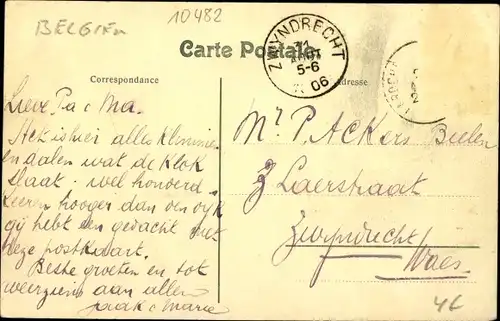 BELGIEN
10482
Carte Postale
ZWYNDRECHT
11
AOUT
5-6
06
Correspondance
Adresse
Lieve Pa & Ma.
Ach is hier alles klimmen
en dalen wat de klok
slaat. wel honderd
keeren hooger dan den
gij hebt een gedacht met
deze postkaart.
Beste groeten en tot
weerziens aan allen
Jaak & Marie
Mr P. Ackers Beelen
Laerstraat
Zwyndrecht
Waes
4€